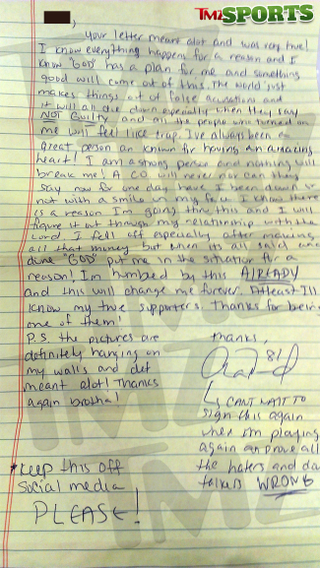 TMZ SPORTS
)
your letter meant alot and was very true!
I know everything happens for a reason and I
know "GOD" has a plan for me and something
good will come out of this. The world just
makes things out of false accusations and
it will all die down especially when they say
NOT GUILTY and all the people who turned on
me will feel like crap. I've always been a
great person an known for having an amazing
heart! I am a strong person and nothing will
break me! A CO will never nor can they
say now for one day have I been down or
not with a smile on my face. I know there
is a reason I'm going thru this and I will
figure it out through my relationship with the
Lord. I fell off especially after making
all that money but when its all said and
done "GOD" put me in the situation for a
reason! I'm humbled by this ALREADY
and this will change me forever. Atleast I'll
know my true supporters. Thanks for being
one of them!
P.S. the pictures are
definitely hanging on
my walls and def
meant alot! Thanks
again brotha!
Thanks,
81
CANT WAIT TO
sign this again
when I'm playing
again an prove all
the haters and
WRONG
*Keep this off
social media
PLEASE!
TMZ